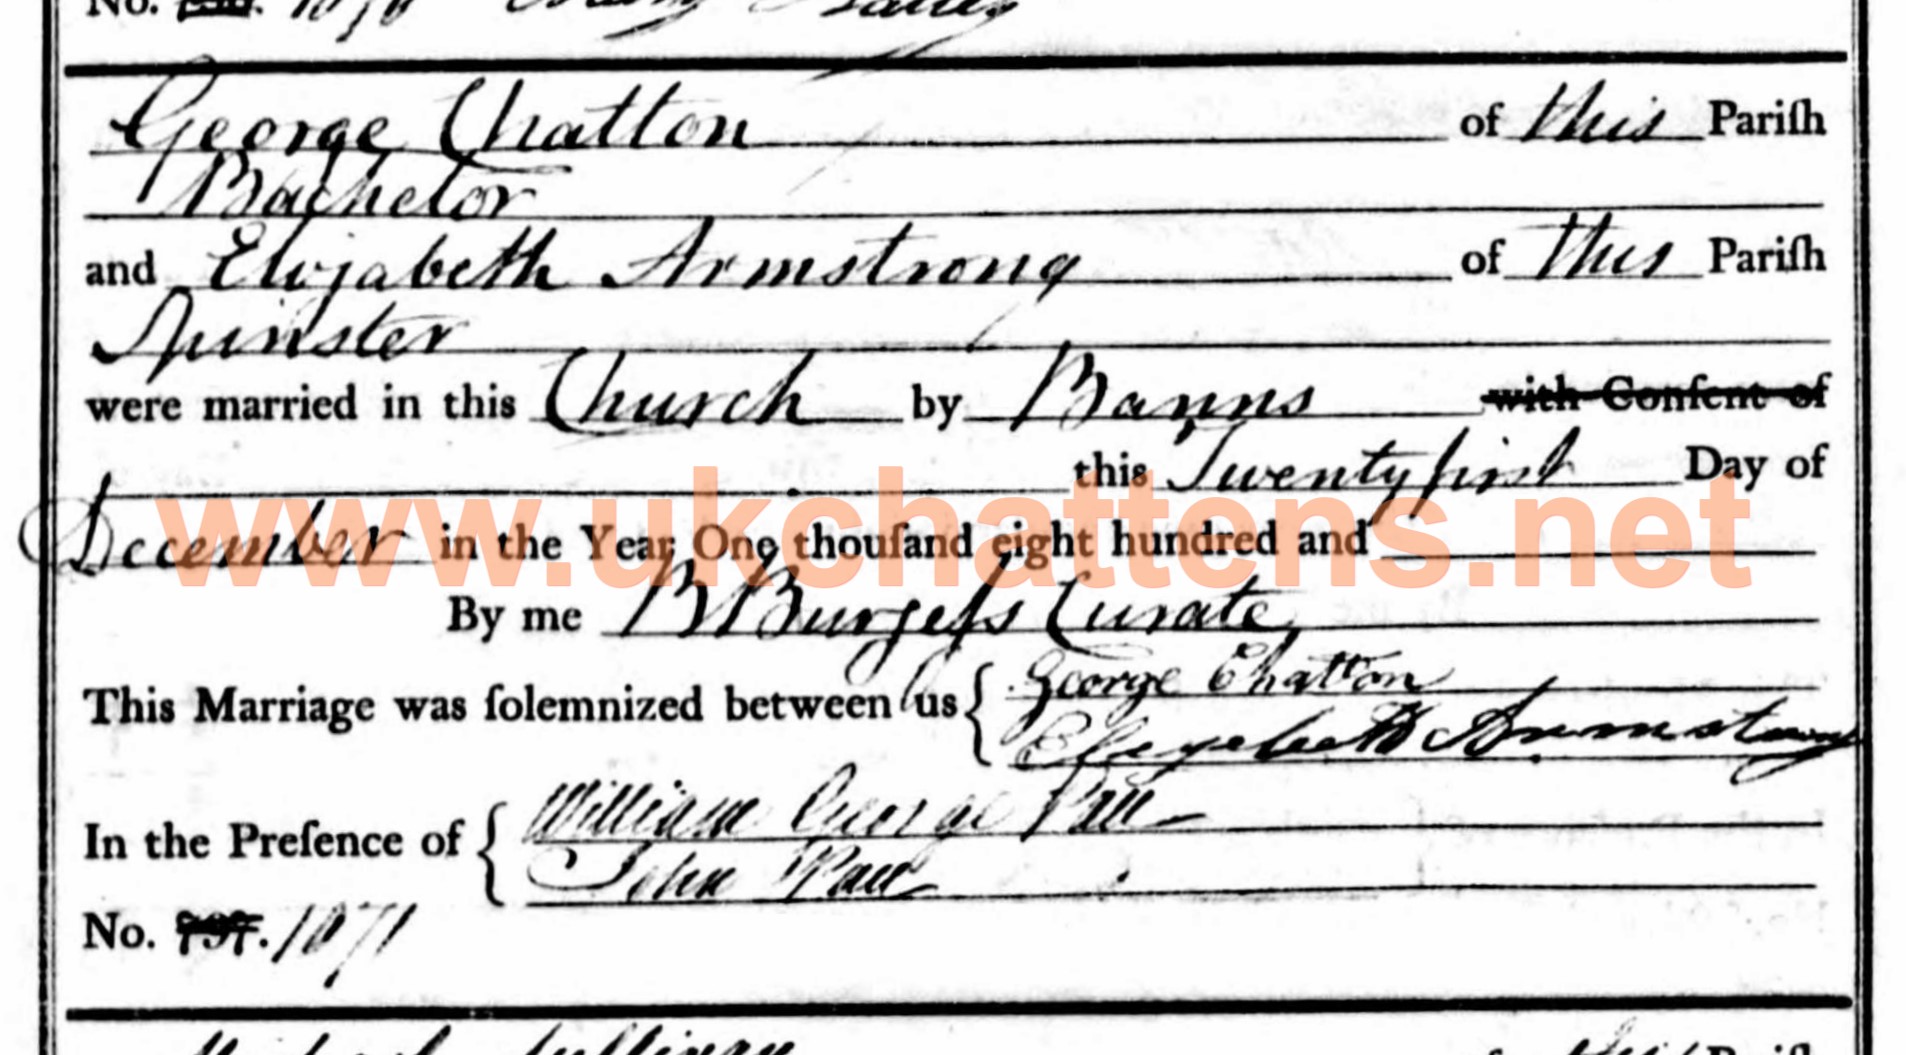 No. 1070
George Chatton of this Pariſh
Bachelor
and Elizabeth Armstrong of this Pariſh
Spinster
were married in this Church by Banns with Conſent of
this Twenty first Day of
December in the Year One thouſand eight hundred and
www.ukchattens.net
By me B Burgeſs Curate
This Marriage was ſolemnized between us { George Chatton
Elizabeth Armstrong
In the Preſence of { William George Pall
John Paul
No. 737. 1071
Sullivan
this Pariſh